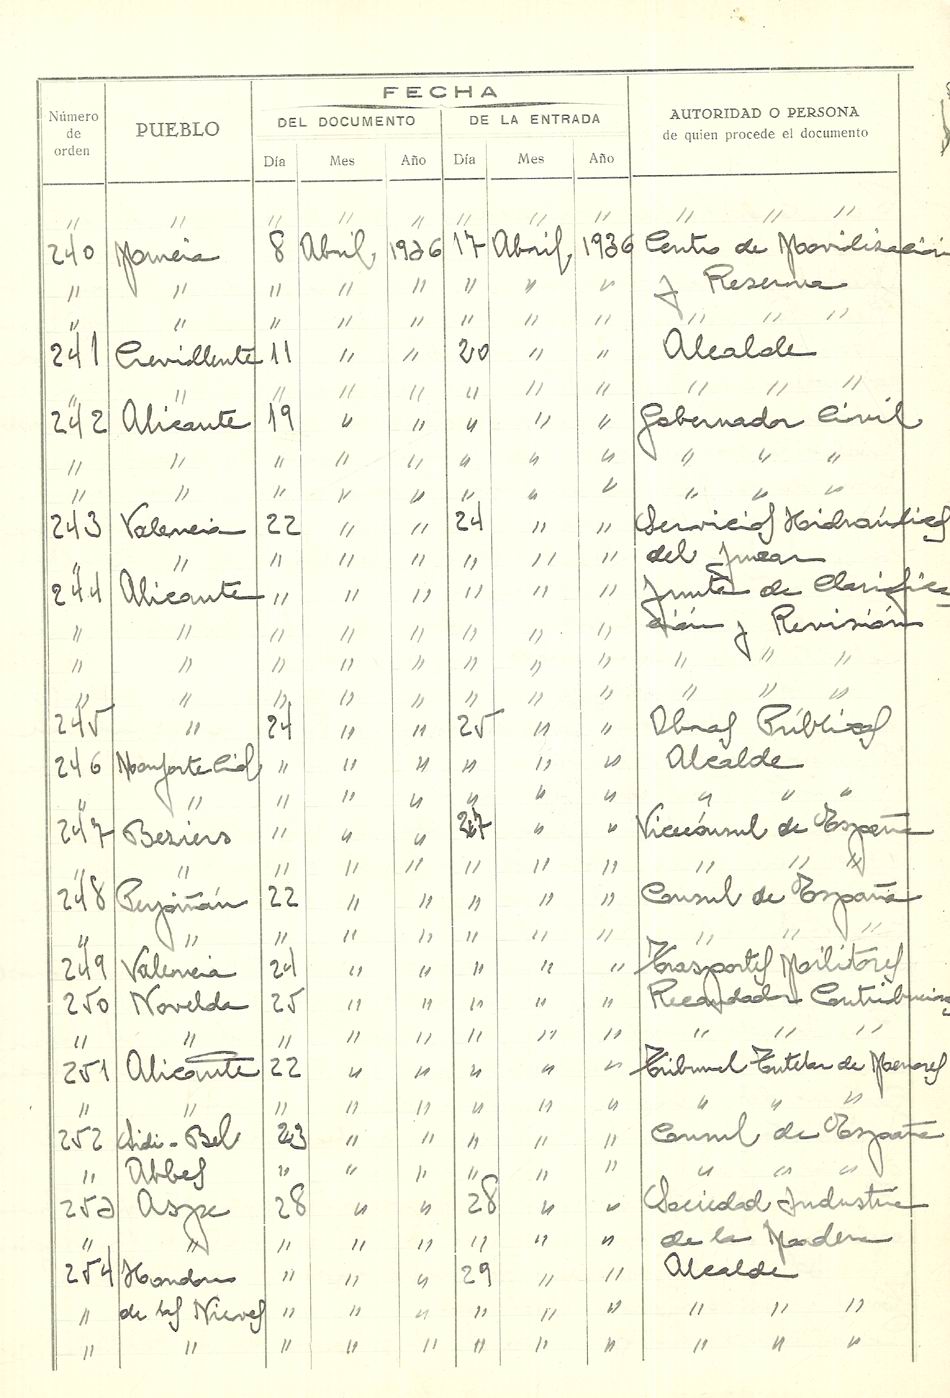 FECHA
Número de orden PUEBLO DEL DOCUMENTO DE LA ENTRADA AUTORIDAD O PERSONA de quien procede el documento
Día Mes Año Día Mes Año
" " " " " " " " " " "
240 Murcia 8 Abril 1936 17 Abril 1936 Centro de Movilización
" " " " " " " " y Reserva
" " " " " " " " " " "
241 Crevillente 11 " " 20 " " Alcalde
" " " " " " " " " " "
242 Alicante 19 " " " " " Gobernador Civil
" " " " " " " " " " "
" " " " " " " " " " "
243 Valencia 22 " " 24 " " Servicios Hidráulicos
" " " " " " " del Jucar
244 Alicante " " " " " " Junta de Clasifica
" " " " " " " " ción y Revisión
" " " " " " " " " " "
" " " " " " " " " " "
245 " 24 " " 25 " " Obras Públicas
246 Monforte Cid " " " " " " Alcalde
" " " " " " " " " " "
247 Beziers " " " 27 " " Vicecónsul de España
" " " " " " " " " "
248 Perpiñán 22 " " " " " Consul de España
" " " " " " " " " " "
249 Valencia 24 " " " " " Trasportes Militares
250 Novelda 25 " " " " " Recaudador Contribucions
" " " " " " " " " " "
251 Alicante 22 " " " " " Tribunal Tutelar de Menores
" " " " " " " " " " "
252 Sidi-Bel 23 " " " " " Consul de España
" Abbes " " " " " " " " "
253 Aspe 28 " " 28 " " Sociedad Industria
" " " " " " " " de la Madera
254 Hondon " " " 29 " " Alcalde
" de las Nieves " " " " " " " " "
" " " " " " " " " " "